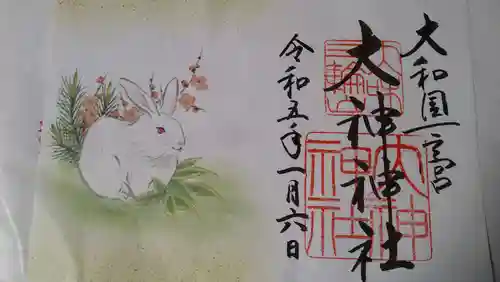 大和国一宮
大神神社
令和五年一月六日
三輪明神
大神神社